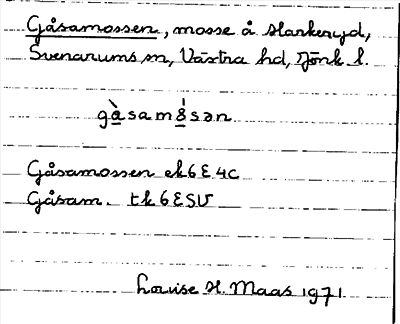 Gåsamossen, mosse å Harkeryd,
Svenarums sn, Västra hd, Jönk. l.
gàsamȯsən
Gåsamossen ek 6 E 4c
Gåsam. tk 6 E SV
Louise H. Maas 1971